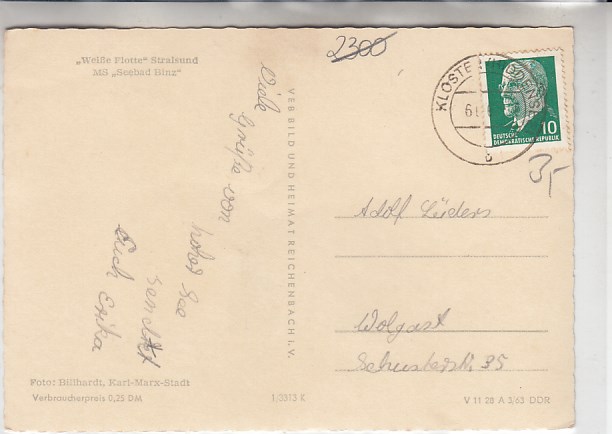 „Weiße Flotte“ Stralsund
MS „Seebad Binz“
2300
Viele
Grüße von
hoher See
sendet
Euch Erika
VEB BILD UND HEIMAT REICHENBACH I. V.
KLOSTER
10
DEUTSCHE
DEMOKRATISCHE REPUBLIK
3,-
Adolf Lüders
Wolgast
Schusterstr. 35
Foto: Billhardt, Karl-Marx-Stadt
Verbraucherpreis 0,25 DM
1/3313 K
V 11 28 A 3/63 DDR